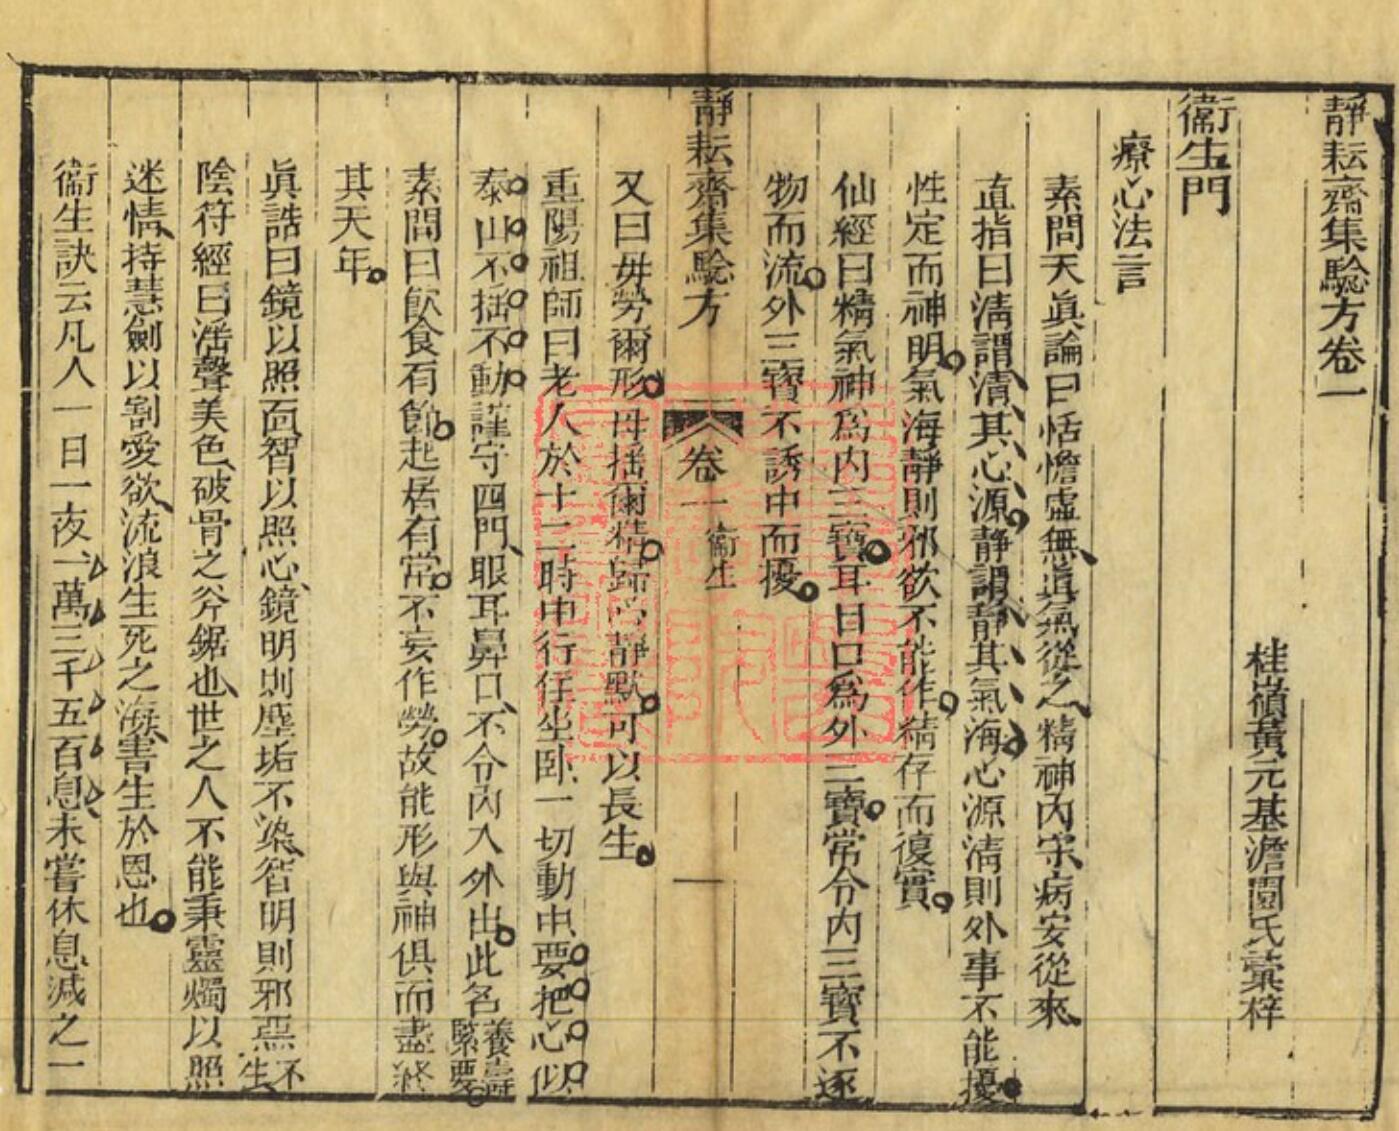 靜耘齋集驗方卷一
桂嶺黃元基澹園氏彙梓
衞生門
療心法言
素問天眞論曰恬憺虛無眞氣從之精神內守病安從來
直指曰淸謂清其心源靜謂靜其氣海心源清則外事不能擾
性定而神明氣海靜則邪欲不能作精存而復實
仙經曰精氣神爲內三寶耳目口爲外三寶常令內三寶不逐
物而流外三寶不誘中而擾
靜耘齋集驗方
卷一
衞生
一
又曰毋勞爾形毋搖爾精歸心靜默可以長生
重陽祖師曰老人於十二時中行住坐臥一切動中要把心似
泰山不搖不動謹守四門眼耳鼻口不令內入外出此名養壽緊要
素問曰飲食有節起居有常不妄作勞故能形與神俱而盡終
其天年
眞誥曰鏡以照面智以照心鏡明則塵垢不染智明則邪惡不生
陰符經曰淫聲美色破骨之斧鋸也世之人不能秉靈燭以照
迷情持慧劍以割愛欲流浪生死之海害生於恩也
衞生訣云凡人一日一夜一萬三千五百息未嘗休息減之一